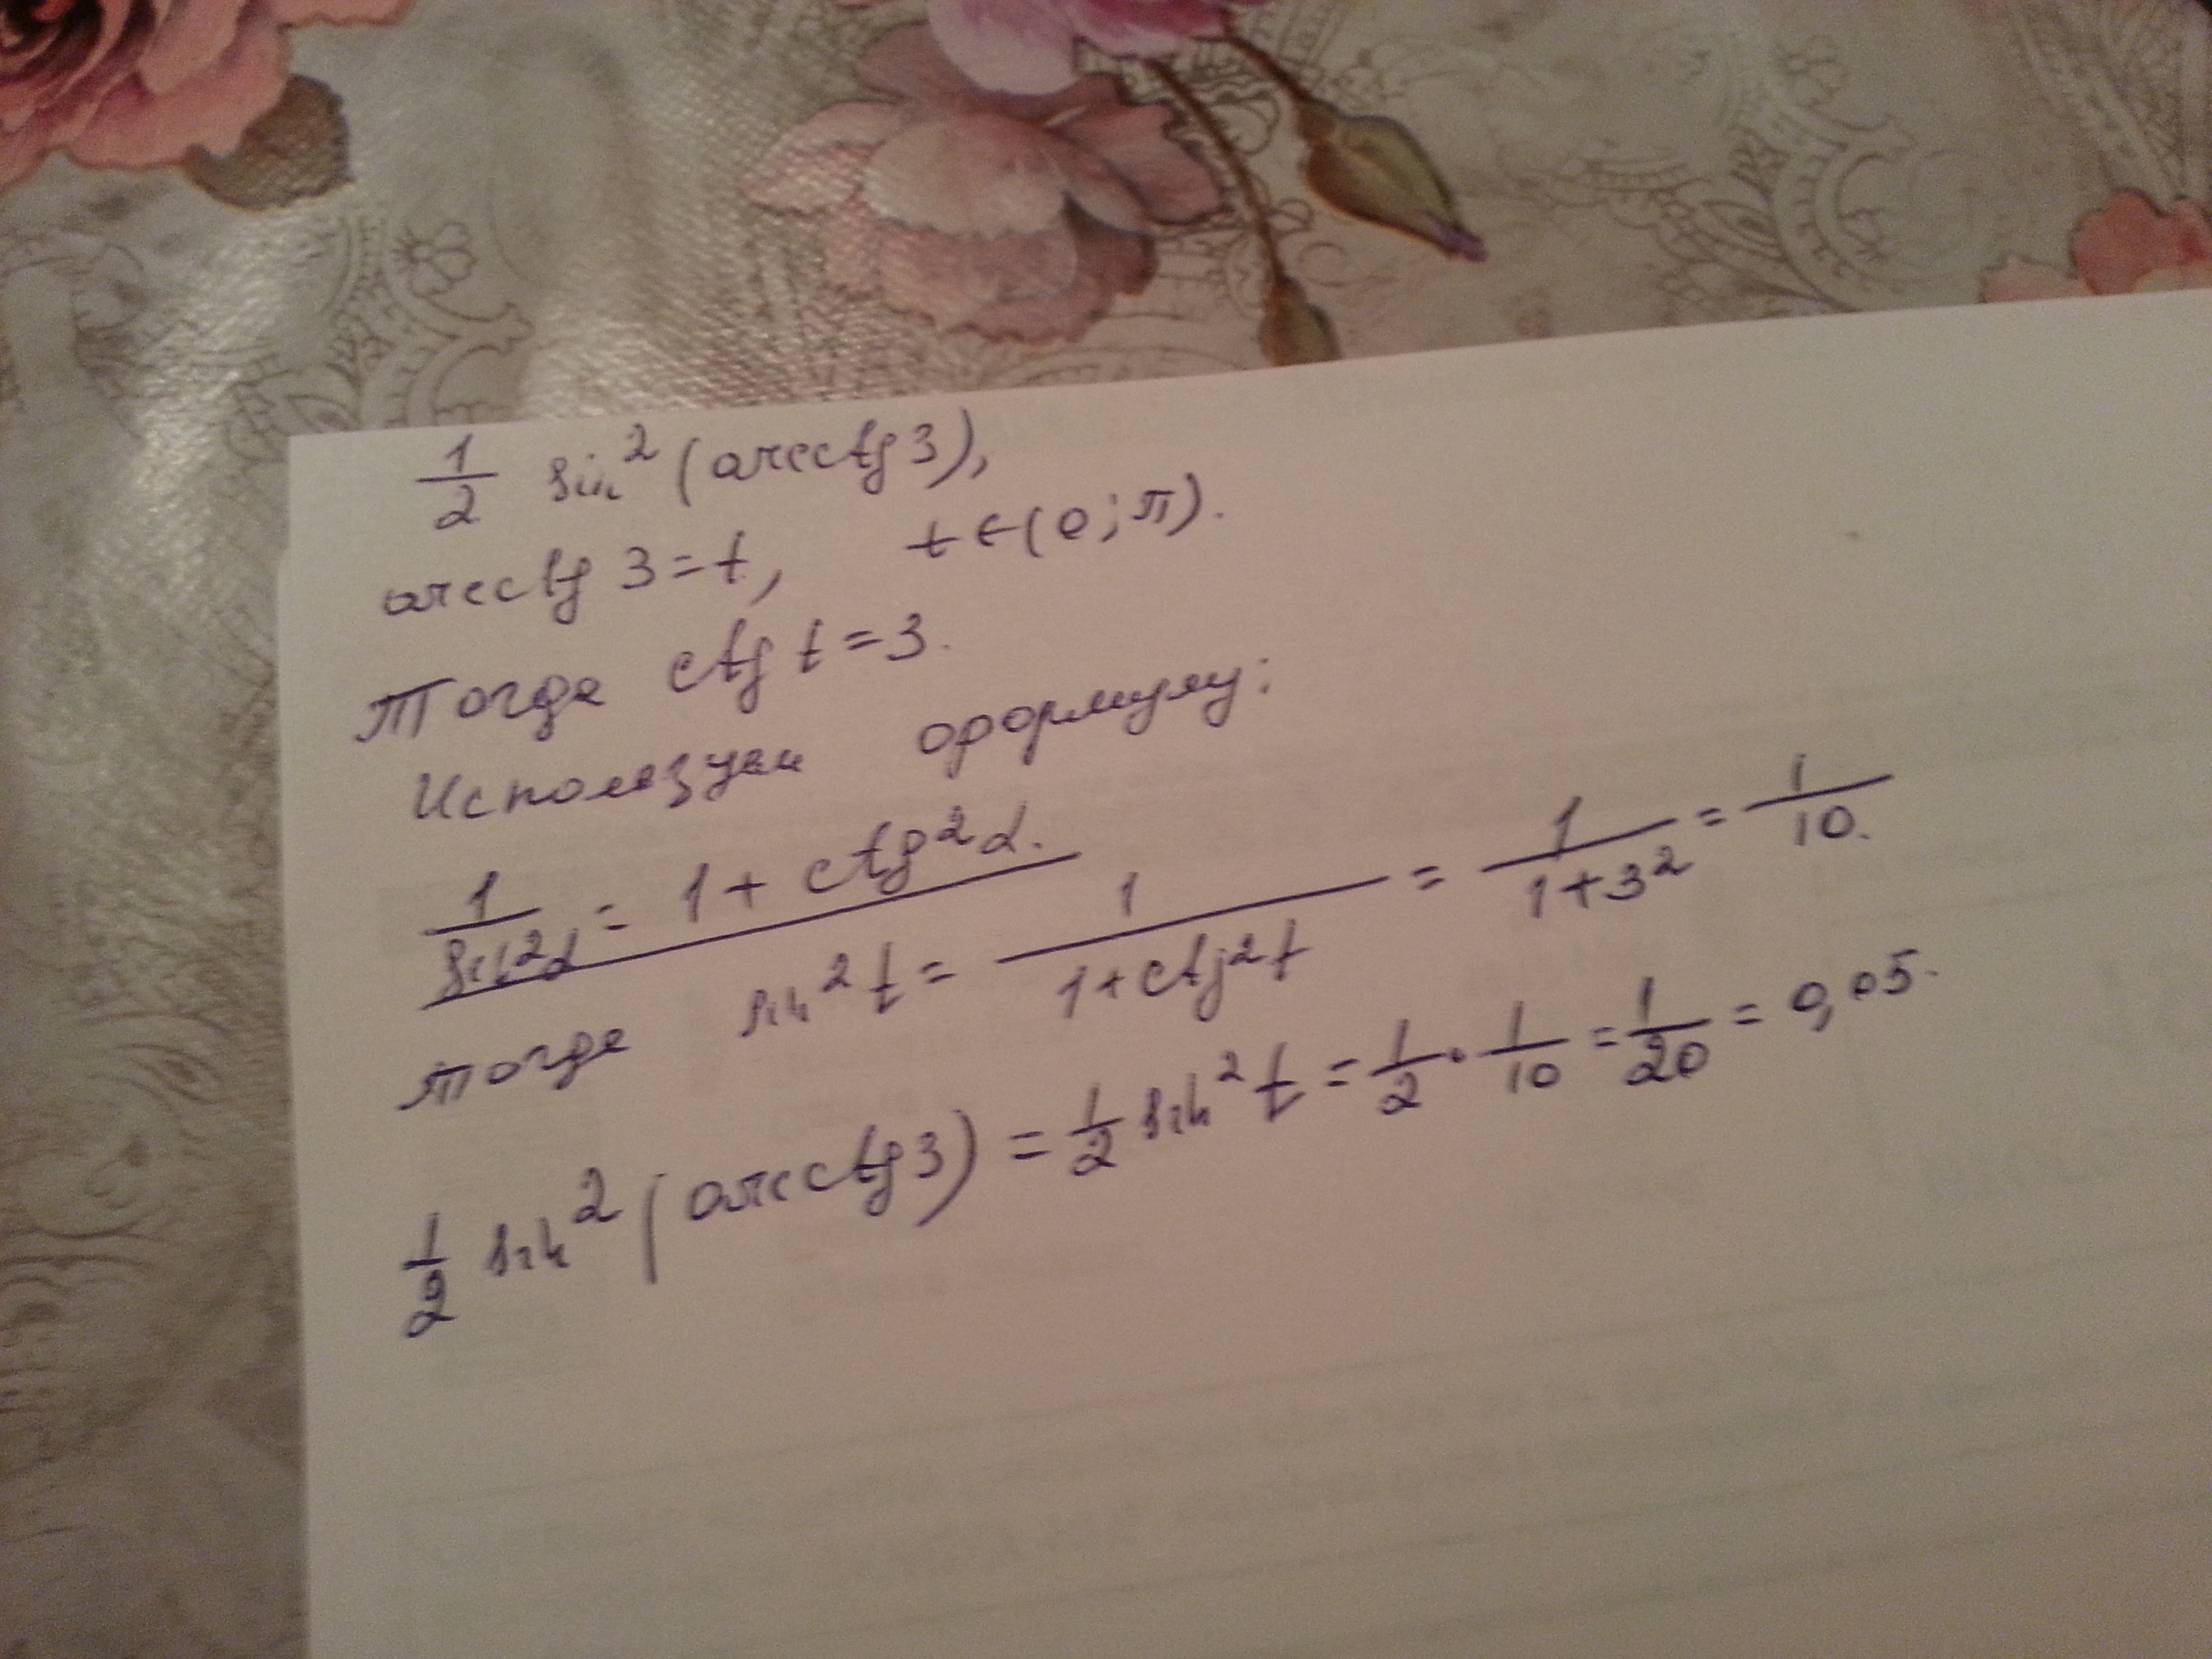 1/2 sin² (arcctg 3),
arcctg 3 = t, t ∈ (0; π).
Тогда ctg t = 3.
Используем формулу:
1/sin²α = 1 + ctg²α.
тогда sin² t = 1/(1 + ctg² t) = 1/(1 + 3²) = 1/10.
1/2 sin² (arcctg 3) = 1/2 sin² t = 1/2 · 1/10 = 1/20 = 0,05.